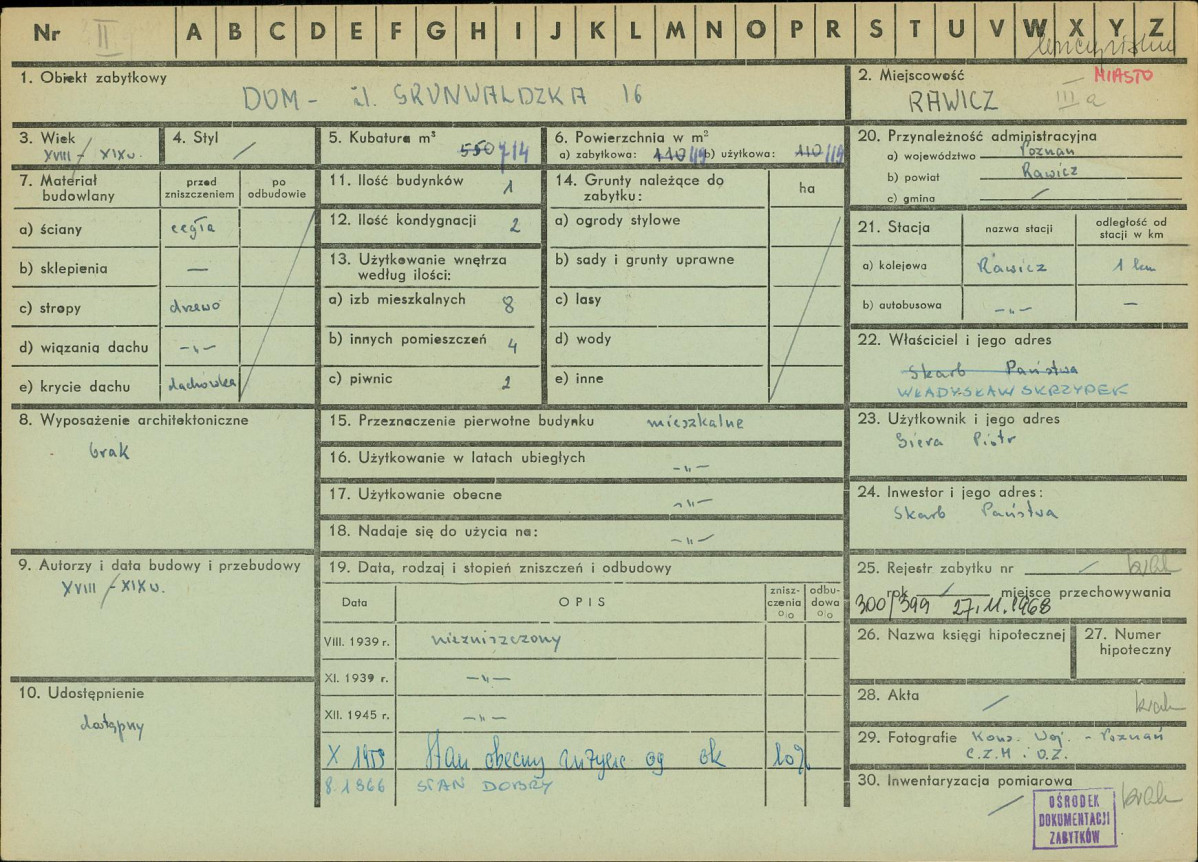 Nr II A B C D E F G H I J K L M N O P R S T U V W X Y Z
1. Obiekt zabytkowy
DOM - ul. GRUNWALDZKA 16
2. Miejscowość MIASTO
RAWICZ III a
3. Wiek
XVIII/XIX w.
4. Styl
/
5. Kubatura m³
550 714
6. Powierzchnia w m²
a) zabytkowa: 110 119 b) użytkowa: 110 119
20. Przynależność administracyjna
a) województwo Poznań
b) powiat Rawicz
c) gmina /
7. Materiał budowlany
przed zniszczeniem
po odbudowie
a) ściany cegła
b) sklepienia —
c) stropy drzewo
d) wiązania dachu —„—
e) krycie dachu dachówka
11. Ilość budynków 1
12. Ilość kondygnacji 2
13. Użytkowanie wnętrza
według ilości:
a) izb mieszkalnych 8
b) innych pomieszczeń 4
c) piwnic 2
14. Grunty należące do
zabytku:
ha
a) ogrody stylowe
b) sady i grunty uprawne
c) lasy
d) wody
e) inne
21. Stacja
nazwa stacji
odległość od
stacji w km
a) kolejowa Rawicz 1 km
b) autobusowa —„— —
22. Właściciel i jego adres
Skarb Państwa
WŁADYSŁAW SKRZYPEK
8. Wyposażenie architektoniczne
brak
15. Przeznaczenie pierwotne budynku mieszkalne
16. Użytkowanie w latach ubiegłych —„—
17. Użytkowanie obecne —„—
18. Nadaje się do użycia na: —„—
23. Użytkownik i jego adres
Siera Piotr
24. Inwestor i jego adres:
Skarb Państwa
9. Autorzy i data budowy i przebudowy
XVIII/XIX w.
19. Data, rodzaj i stopień zniszczeń i odbudowy
Data
OPIS
znisz-
czenia
o/o
odbu-
dowa
o/o
VIII. 1939 r. niezniszczony
XI. 1939 r. —„—
XII. 1945 r. —„—
X 1959 Stan obecny zużycie og ok 10%
8.1966 STAN DOBRY
10. Udostępnienie
dostępny
25. Rejestr zabytku nr / brak
rok / miejsce przechowywania
300/399 27.11.1968
26. Nazwa księgi hipotecznej
27. Numer
hipoteczny
28. Akta / brak
29. Fotografie Kons. Woj. - Poznań
C.Z.M i O.Z.
30. Inwentaryzacja pomiarowa
/ brak
OŚRODEK
DOKUMENTACJI
ZABYTKÓW